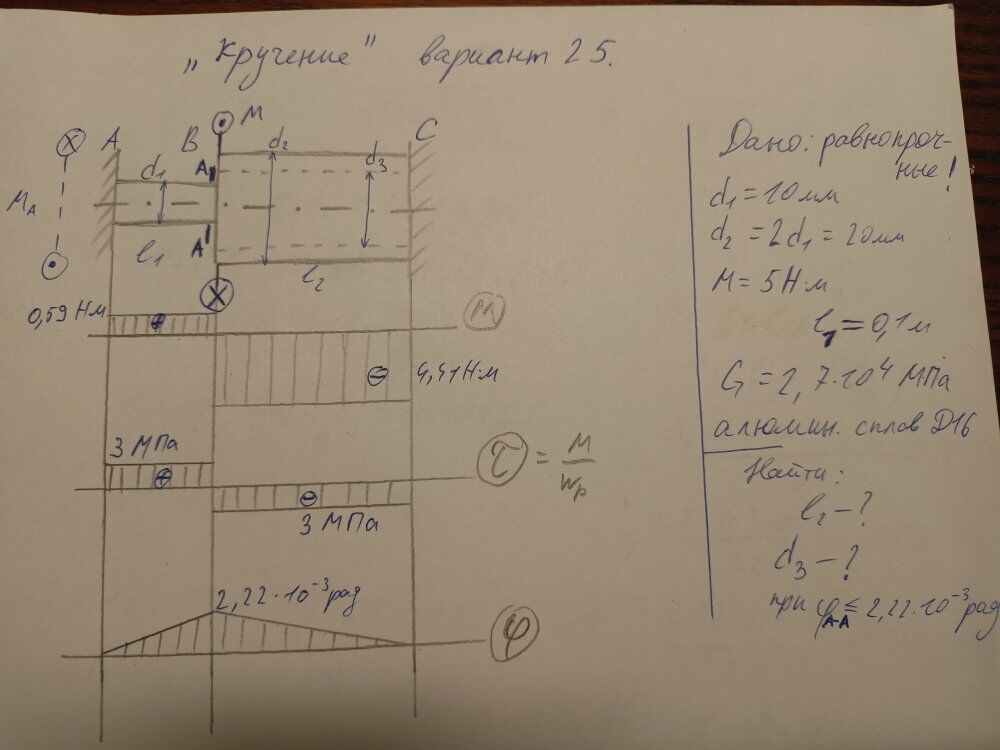 „Кручение" вариант 25.
M
A
B
d₂
C
d₁
A
d₃
M_A
A
l₁
l₂
0,59 Нм
M
4,41 Н·м
3 МПа
τ = M/Wp
3 МПа
2,22·10⁻³рад
φ
Дано: равнопроч-
ные!
d₁=10мм
d₂=2d₁=20мм
M=5Н·м
l₁=0,1м
G=2,7·10⁴ МПа
алюмин. сплав Д16
Найти:
l₂-?
d₃-?
при φ_A-A ≤ 2,22·10⁻³рад